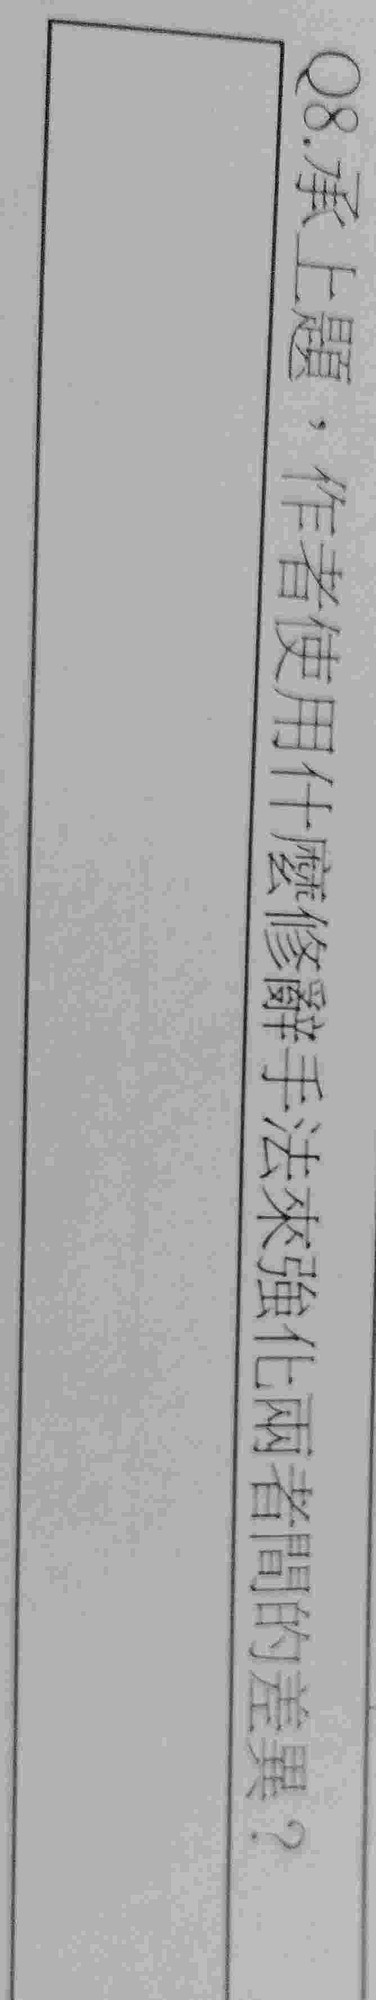 Q8.承上題，作者使用什麼修辭手法來強化兩者間的差異？